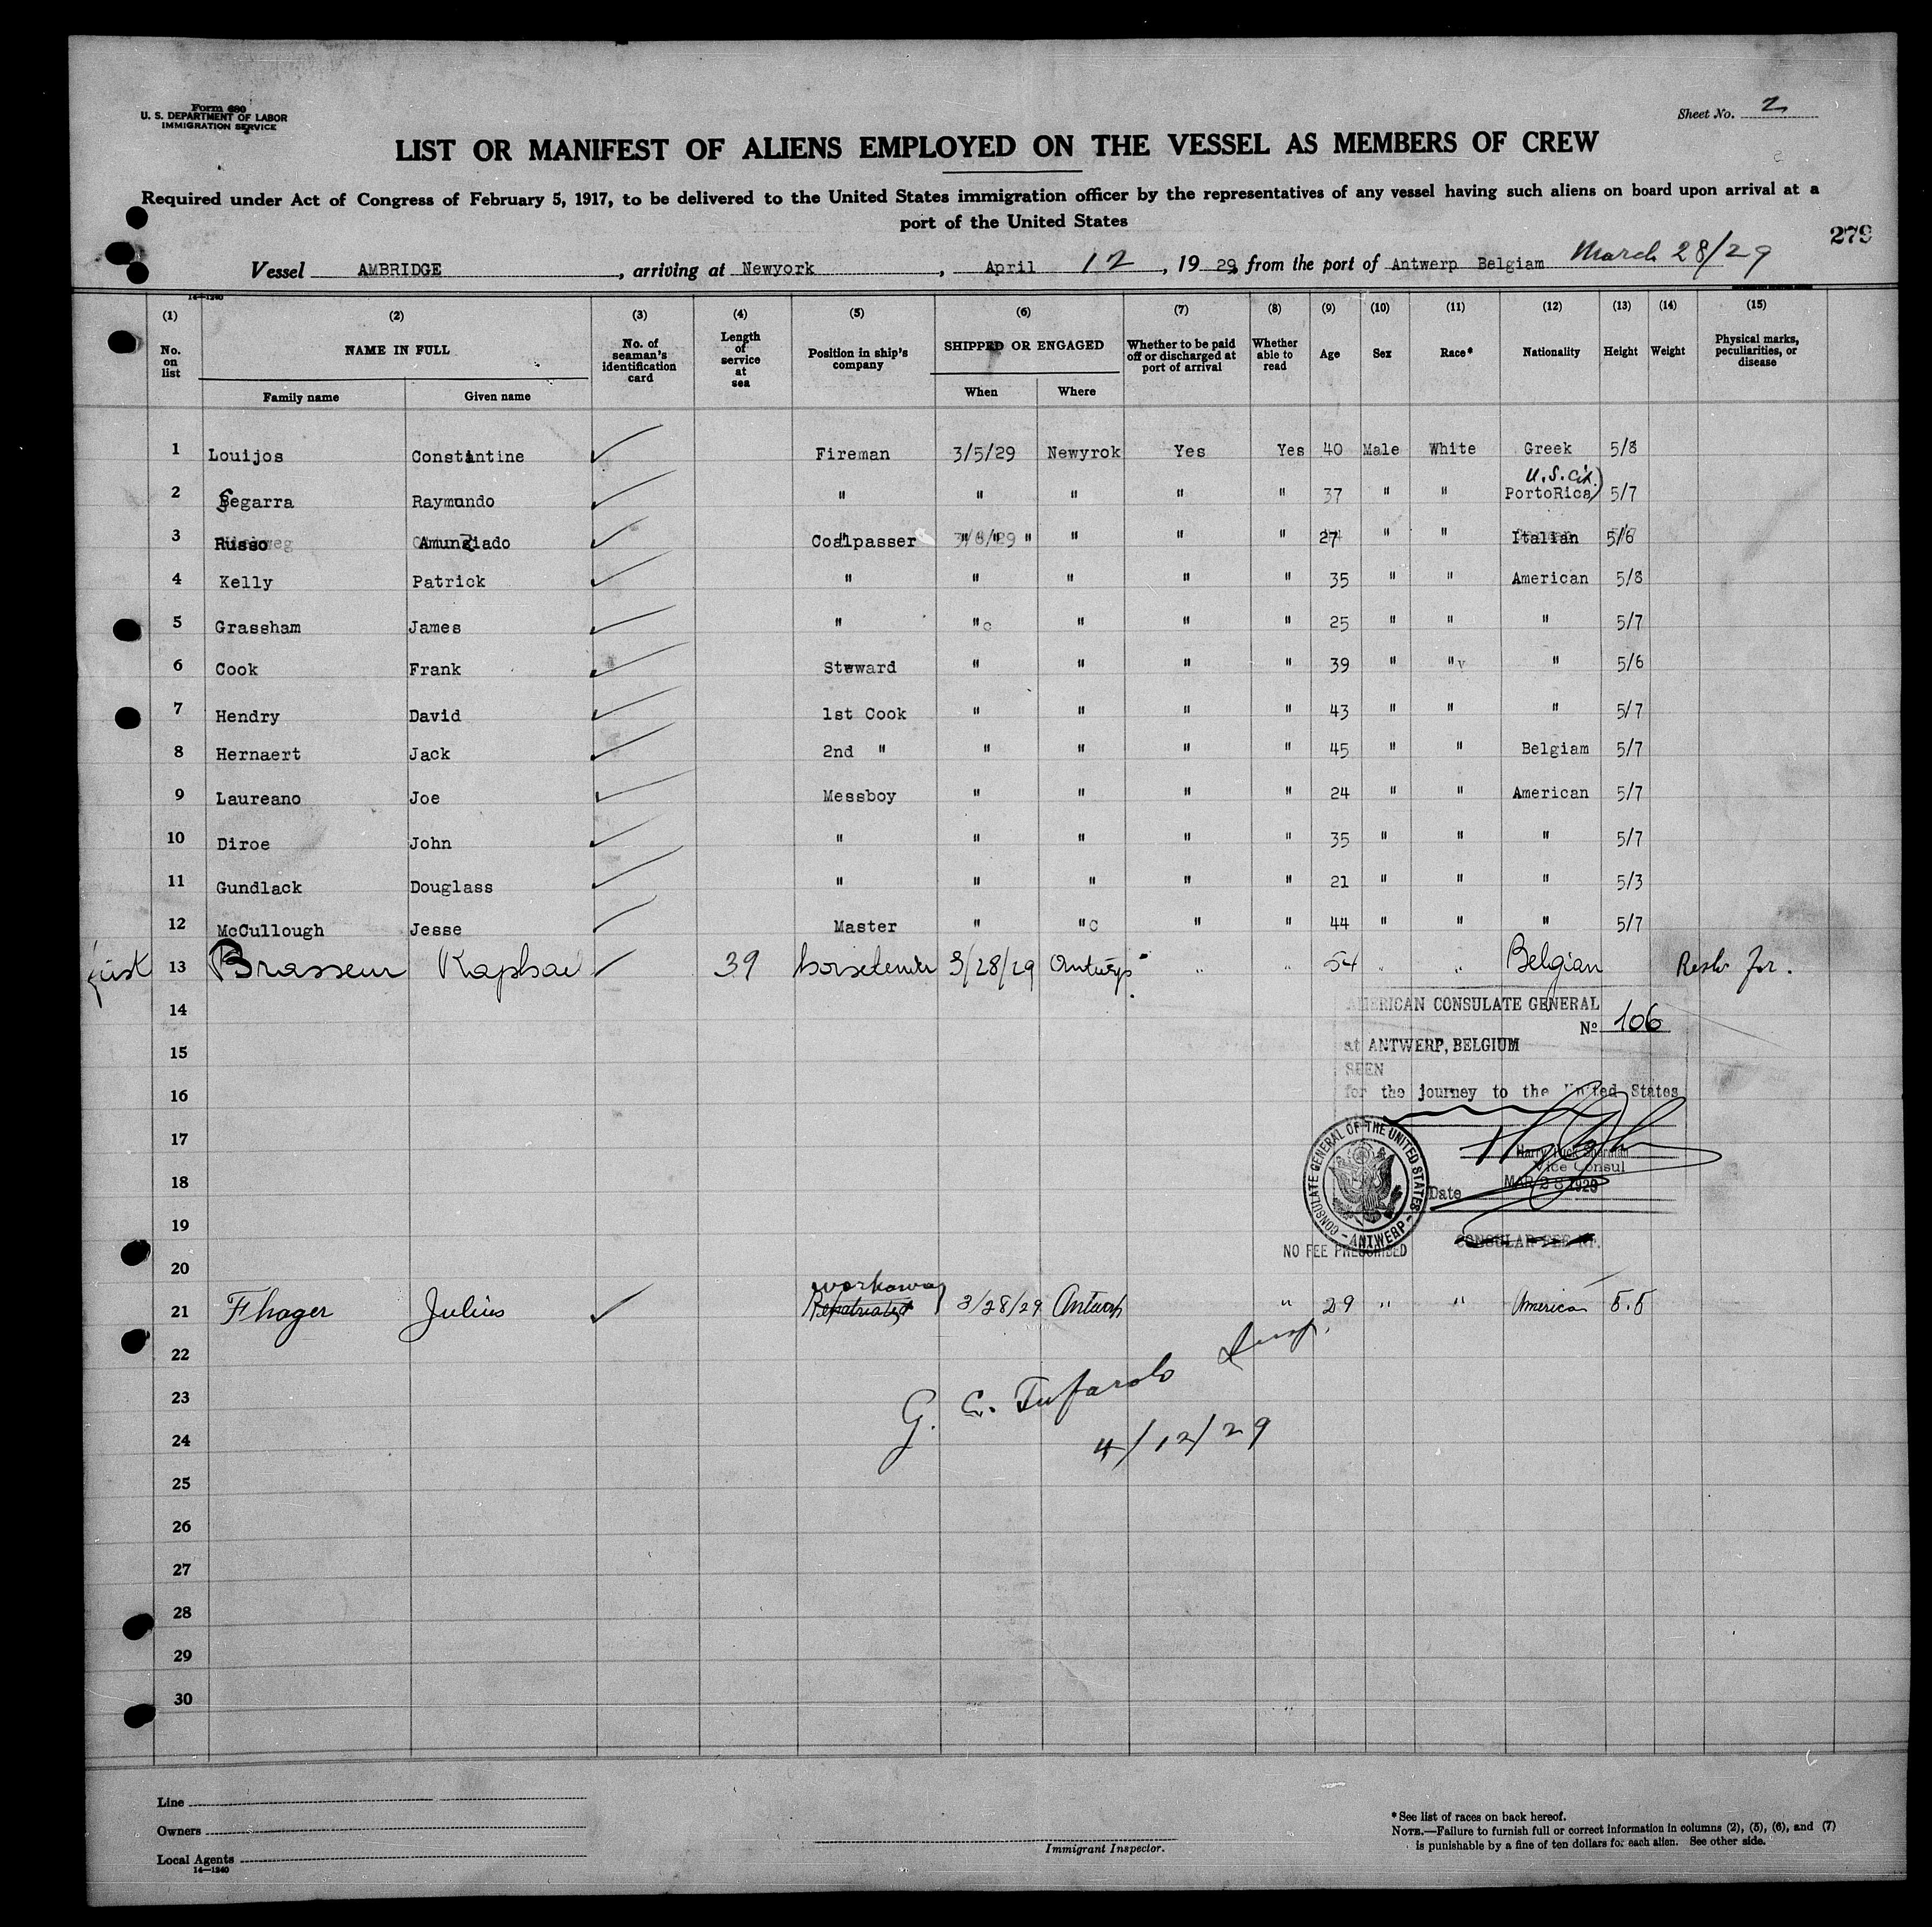 Form 680
U. S. DEPARTMENT OF LABOR
IMMIGRATION SERVICE
Sheet No. 2
LIST OR MANIFEST OF ALIENS EMPLOYED ON THE VESSEL AS MEMBERS OF CREW
Required under Act of Congress of February 5, 1917, to be delivered to the United States immigration officer by the representatives of any vessel having such aliens on board upon arrival at a
port of the United States
279
Vessel AMBRIDGE, arriving at Newyork, April 12, 1929, from the port of Antwerp Belgiam March 28/29
14—1240
(1) (2) (3) (4) (5) (6) (7) (8) (9) (10) (11) (12) (13) (14) (15)
No. on list NAME IN FULL No. of seaman's identification card Length of service at sea Position in ship's company SHIPPED OR ENGAGED Whether to be paid off or discharged at port of arrival Whether able to read Age Sex Race* Nationality Height Weight Physical marks, peculiarities, or disease
Family name Given name When Where
1 Louijos Constantine Fireman 3/5/29 Newyrok Yes Yes 40 Male White Greek 5/8
U.S. Cit.)
2 Segarra Raymundo " " " " " 37 " " PortoRica 5/7
3 Russo Amunziado Coalpasser " " " " " " 27 " " Italian 5/6
4 Kelly Patrick " " " " " 35 " " American 5/8
5 Grassham James " "c " " " 25 " " " 5/7
6 Cook Frank Steward " " " " 39 " "v " 5/6
7 Hendry David 1st Cook " " " " 43 " " " 5/7
8 Hernaert Jack 2nd " " " " " 45 " " Belgiam 5/7
9 Laureano Joe Messboy " " " " 24 " " American 5/7
10 Diroe John " " " " " 35 " " " 5/7
11 Gundlack Douglass " " " " " 21 " " " 5/3
12 McCullough Jesse Master " "c " " 44 " " " 5/7
13 Brasseur Raphael 39 horsetender 3/28/29 Antwerp " " 54 " " Belgian
14 AMERICAN CONSULATE GENERAL
No 106
15 at ANTWERP, BELGIUM
SEEN
16 for the journey to the United States
17 CONSULATE GENERAL OF THE UNITED STATES - ANTWERP -
Vice Consul
18 Date MAR 28 1929
19 NO FEE PRESCRIBED CONSULAR FEE
20
workaway
21 Fhager Julius Repatriated 3/28/29 Antwerp " 29 " " American 5.5
22
23 G. C. Tufarolo Insp.
24 4/12/29
25
26
27
28
29
30
Line
Owners
Local Agents
14—1240
Immigrant Inspector.
* See list of races on back hereof.
NOTE.—Failure to furnish full or correct information in columns (2), (5), (6), and (7)
is punishable by a fine of ten dollars for each alien. See other side.